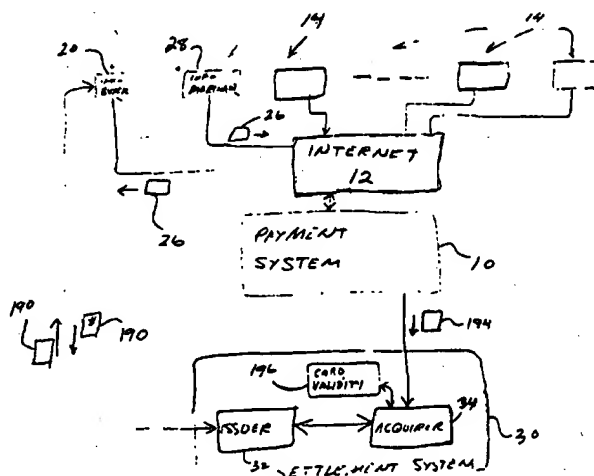 20
28
14
14
INFO
BUYER
INFO
26
INTERNET
12
26
PAYMENT
SYSTEM
10
190
190
194
196
CARD
VALIDITY
34
ISSUER
ACQUIRER
30
32
SETTLEMENT SYSTEM